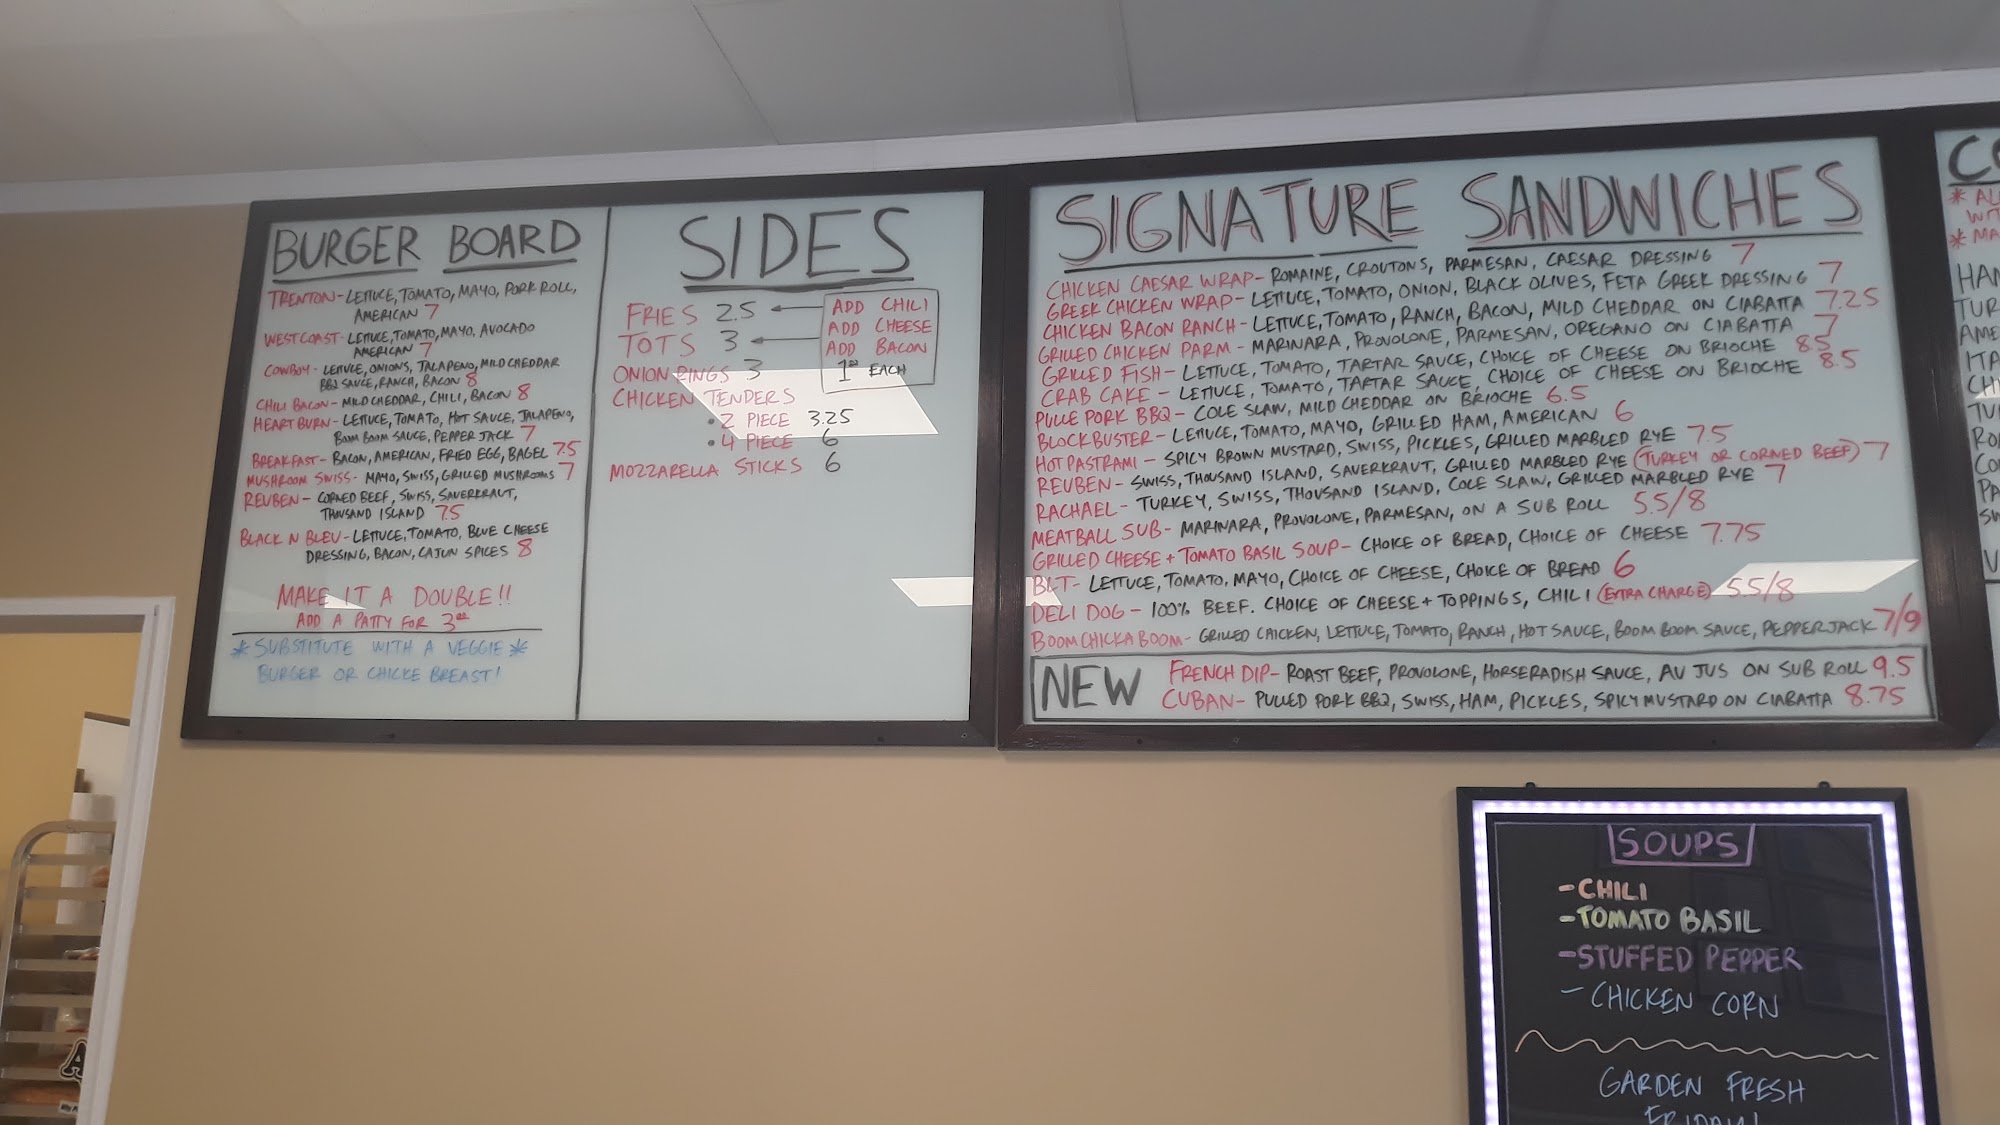 BURGER BOARD
TRENTON - LETTUCE, TOMATO, MAYO, PORK ROLL,
AMERICAN 7
WEST COAST - LETTUCE, TOMATO, MAYO, AVOCADO
AMERICAN 7
COWBOY - LETTUCE, ONIONS, JALAPENO, MILD CHEDDAR
BBQ SAUCE, RANCH, BACON 8
CHILI BACON - MILD CHEDDAR, CHILI, BACON 8
HEART BURN - LETTUCE, TOMATO, HOT SAUCE, JALAPENO,
BOOM BOOM SAUCE, PEPPER JACK 7
BREAKFAST - BACON, AMERICAN, FRIED EGG, BAGEL 7.5
MUSHROOM SWISS - MAYO, SWISS, GRILLED MUSHROOMS 7
REUBEN - CORNED BEEF, SWISS, SAUERKRAUT,
THOUSAND ISLAND 7.5
BLACK N BLEU - LETTUCE, TOMATO, BLUE CHEESE
DRESSING, BACON, CAJUN SPICES 8
MAKE IT A DOUBLE!!
ADD A PATTY FOR 3.00
* SUBSTITUTE WITH A VEGGIE *
BURGER OR CHICKE BREAST!
SIDES
FRIES 2.5
TOTS 3
ADD CHILI
ADD CHEESE
ADD BACON
1 EACH
ONION RINGS 3
CHICKEN TENDERS
• 2 PIECE 3.25
• 4 PIECE 6
MOZZARELLA STICKS 6
SIGNATURE SANDWICHES
CHICKEN CAESAR WRAP - ROMAINE, CROUTONS, PARMESAN, CAESAR DRESSING 7
GREEK CHICKEN WRAP - LETTUCE, TOMATO, ONION, BLACK OLIVES, FETA GREEK DRESSING 7
CHICKEN BACON RANCH - LETTUCE, TOMATO, RANCH, BACON, MILD CHEDDAR ON CIABATTA 7.25
GRILLED CHICKEN PARM - MARINARA, PROVOLONE, PARMESAN, OREGANO ON CIABATTA 7
GRILLED FISH - LETTUCE, TOMATO, TARTAR SAUCE, CHOICE OF CHEESE ON BRIOCHE 8.5
CRAB CAKE - LETTUCE, TOMATO, TARTAR SAUCE, CHOICE OF CHEESE ON BRIOCHE 8.5
PULLE PORK BBQ - COLE SLAW, MILD CHEDDAR ON BRIOCHE 6.5
BLOCKBUSTER - LETTUCE, TOMATO, MAYO, GRILLED HAM, AMERICAN 6
HOT PASTRAMI - SPICY BROWN MUSTARD, SWISS, PICKLES, GRILLED MARBLED RYE 7.5
REUBEN - SWISS, THOUSAND ISLAND, SAUERKRAUT, GRILLED MARBLED RYE (TURKEY OR CORNED BEEF) 7
RACHAEL - TURKEY, SWISS, THOUSAND ISLAND, COLE SLAW, GRILLED MARBLED RYE 7
MEATBALL SUB - MARINARA, PROVOLONE, PARMESAN, ON A SUB ROLL 5.5/8
GRILLED CHEESE + TOMATO BASIL SOUP - CHOICE OF BREAD, CHOICE OF CHEESE 7.75
BLT - LETTUCE, TOMATO, MAYO, CHOICE OF CHEESE, CHOICE OF BREAD 6
DELI DOG - 100% BEEF. CHOICE OF CHEESE + TOPPINGS, CHILI (EXTRA CHARGE) 5.5/8
BOOM CHICKA BOOM - GRILLED CHICKEN, LETTUCE, TOMATO, RANCH, HOT SAUCE, BOOM BOOM SAUCE, PEPPERJACK 7/9
NEW
FRENCH DIP - ROAST BEEF, PROVOLONE, HORSERADISH SAUCE, AU JUS ON SUB ROLL 9.5
CUBAN - PULLED PORK BBQ, SWISS, HAM, PICKLES, SPICY MUSTARD ON CIABATTA 8.75
SOUPS
- CHILI
- TOMATO BASIL
- STUFFED PEPPER
- CHICKEN CORN
GARDEN FRESH
FRIDAY!